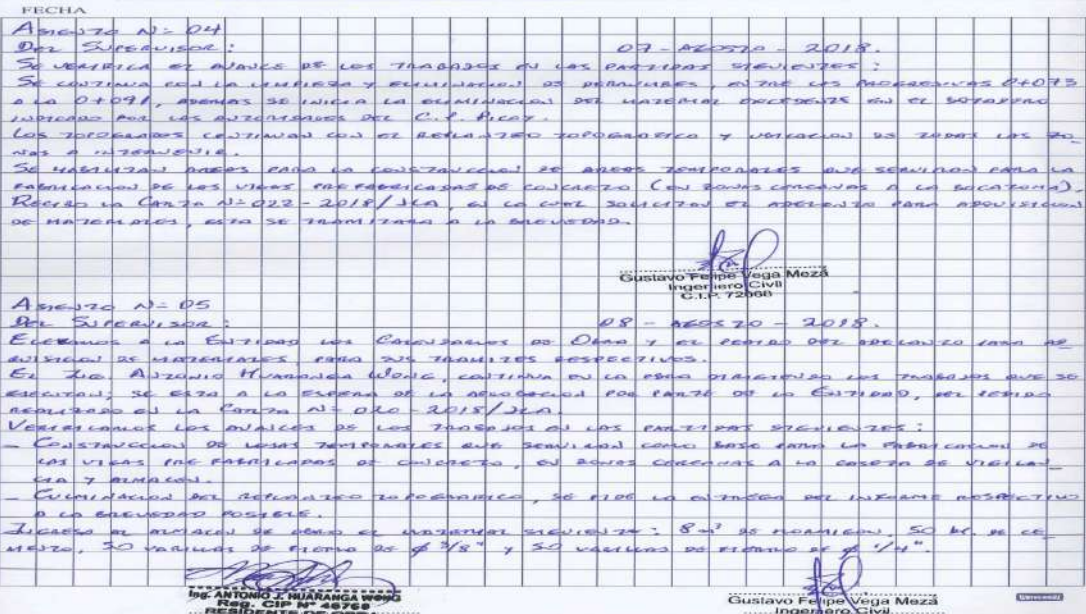 FECHA
ASIENTO Nº 04
DEL SUPERVISOR:
07 - AGOSTO - 2018.
SE VERIFICA EL AVANCE DE LOS TRABAJOS EN LAS PARTIDAS SIGUIENTES:
SE CONTINUA CON LA LIMPIEZA Y ELIMINACION DE DERRUMBES, ENTRE LAS PROGRESIVAS 0+073
A LA 0+091, ADEMAS SE INICIA LA ELIMINACION DEL MATERIAL EXCEDENTE EN EL BOTADERO
INDICADO POR LAS AUTORIDADES DEL C.P. PICOY.
LOS TOPOGRAFOS CONTINUAN CON EL REPLANTEO TOPOGRAFICO Y UBICACION DE TODAS LAS ZO_
NAS A INTERVENIR.
SE HABILITAN AREAS PARA LA CONSTRUCCION DE AREAS TEMPORALES QUE SERVIRAN PARA LA
FABRICACION DE LAS VIGAS PREFABRICADAS DE CONCRETO (EN ZONAS CERCANAS A LA BOCATOMA).
RECIBO LA CARTA Nº 022 - 2018/JLA, EN LA CUAL SOLICITAN EL ADELANTO PARA ADQUISICION
DE MATERIALES, ESTA SE TRAMITARA A LA BREVEDAD.
Gustavo Felipe Vega Meza
Ingeniero Civil
C.I.P. 72068
ASIENTO Nº 05
DEL SUPERVISOR:
08 - AGOSTO - 2018.
ELEVAMOS A LA ENTIDAD LOS CALENDARIOS DE OBRA Y EL PEDIDO DEL ADELANTO PARA AD_
QUISICION DE MATERIALES, PARA SUS TRAMITES RESPECTIVOS.
EL ING. ANTONIO HUARANGA WONG, CONTINUA EN LA OBRA DIRIGIENDO LOS TRABAJOS QUE SE
EJECUTAN, SE ESTA A LA ESPERA DE LA APROBACION POR PARTE DE LA ENTIDAD, DEL PEDIDO
REALIZADO EN LA CARTA Nº 020 - 2018/JLA.
VERIFICAMOS LOS AVANCES DE LOS TRABAJOS EN LAS PARTIDAS SIGUIENTES:
- CONSTRUCCION DE LOSAS TEMPORALES QUE SERVIRAN COMO BASE PARA LA FABRICACION DE
LAS VIGAS PREFABRICADAS DE CONCRETO, EN ZONAS CERCANAS A LA CASETA DE VIGILAN_
CIA Y ALMACEN.
- CULMINACION DEL REPLANTEO TOPOGRAFICO, SE PIDE LA ENTREGA DEL INFORME RESPECTIVO
A LA BREVEDAD POSIBLE.
INGRESO AL ALMACEN DE OBRA EL MATERIAL SIGUIENTE: 8 m³ DE HORMIGON, 50 DE CE_
MENTO, 50 VARILLAS DE FIERRO DE ø 3/8" Y 50 VARILLAS DE FIERRO DE ø 1/4".
Ing. ANTONIO J. HUARANGA WONG
Reg. CIP Nº 46768
RESIDENTE DE OBRA
Gustavo Felipe Vega Meza
Ingeniero Civil